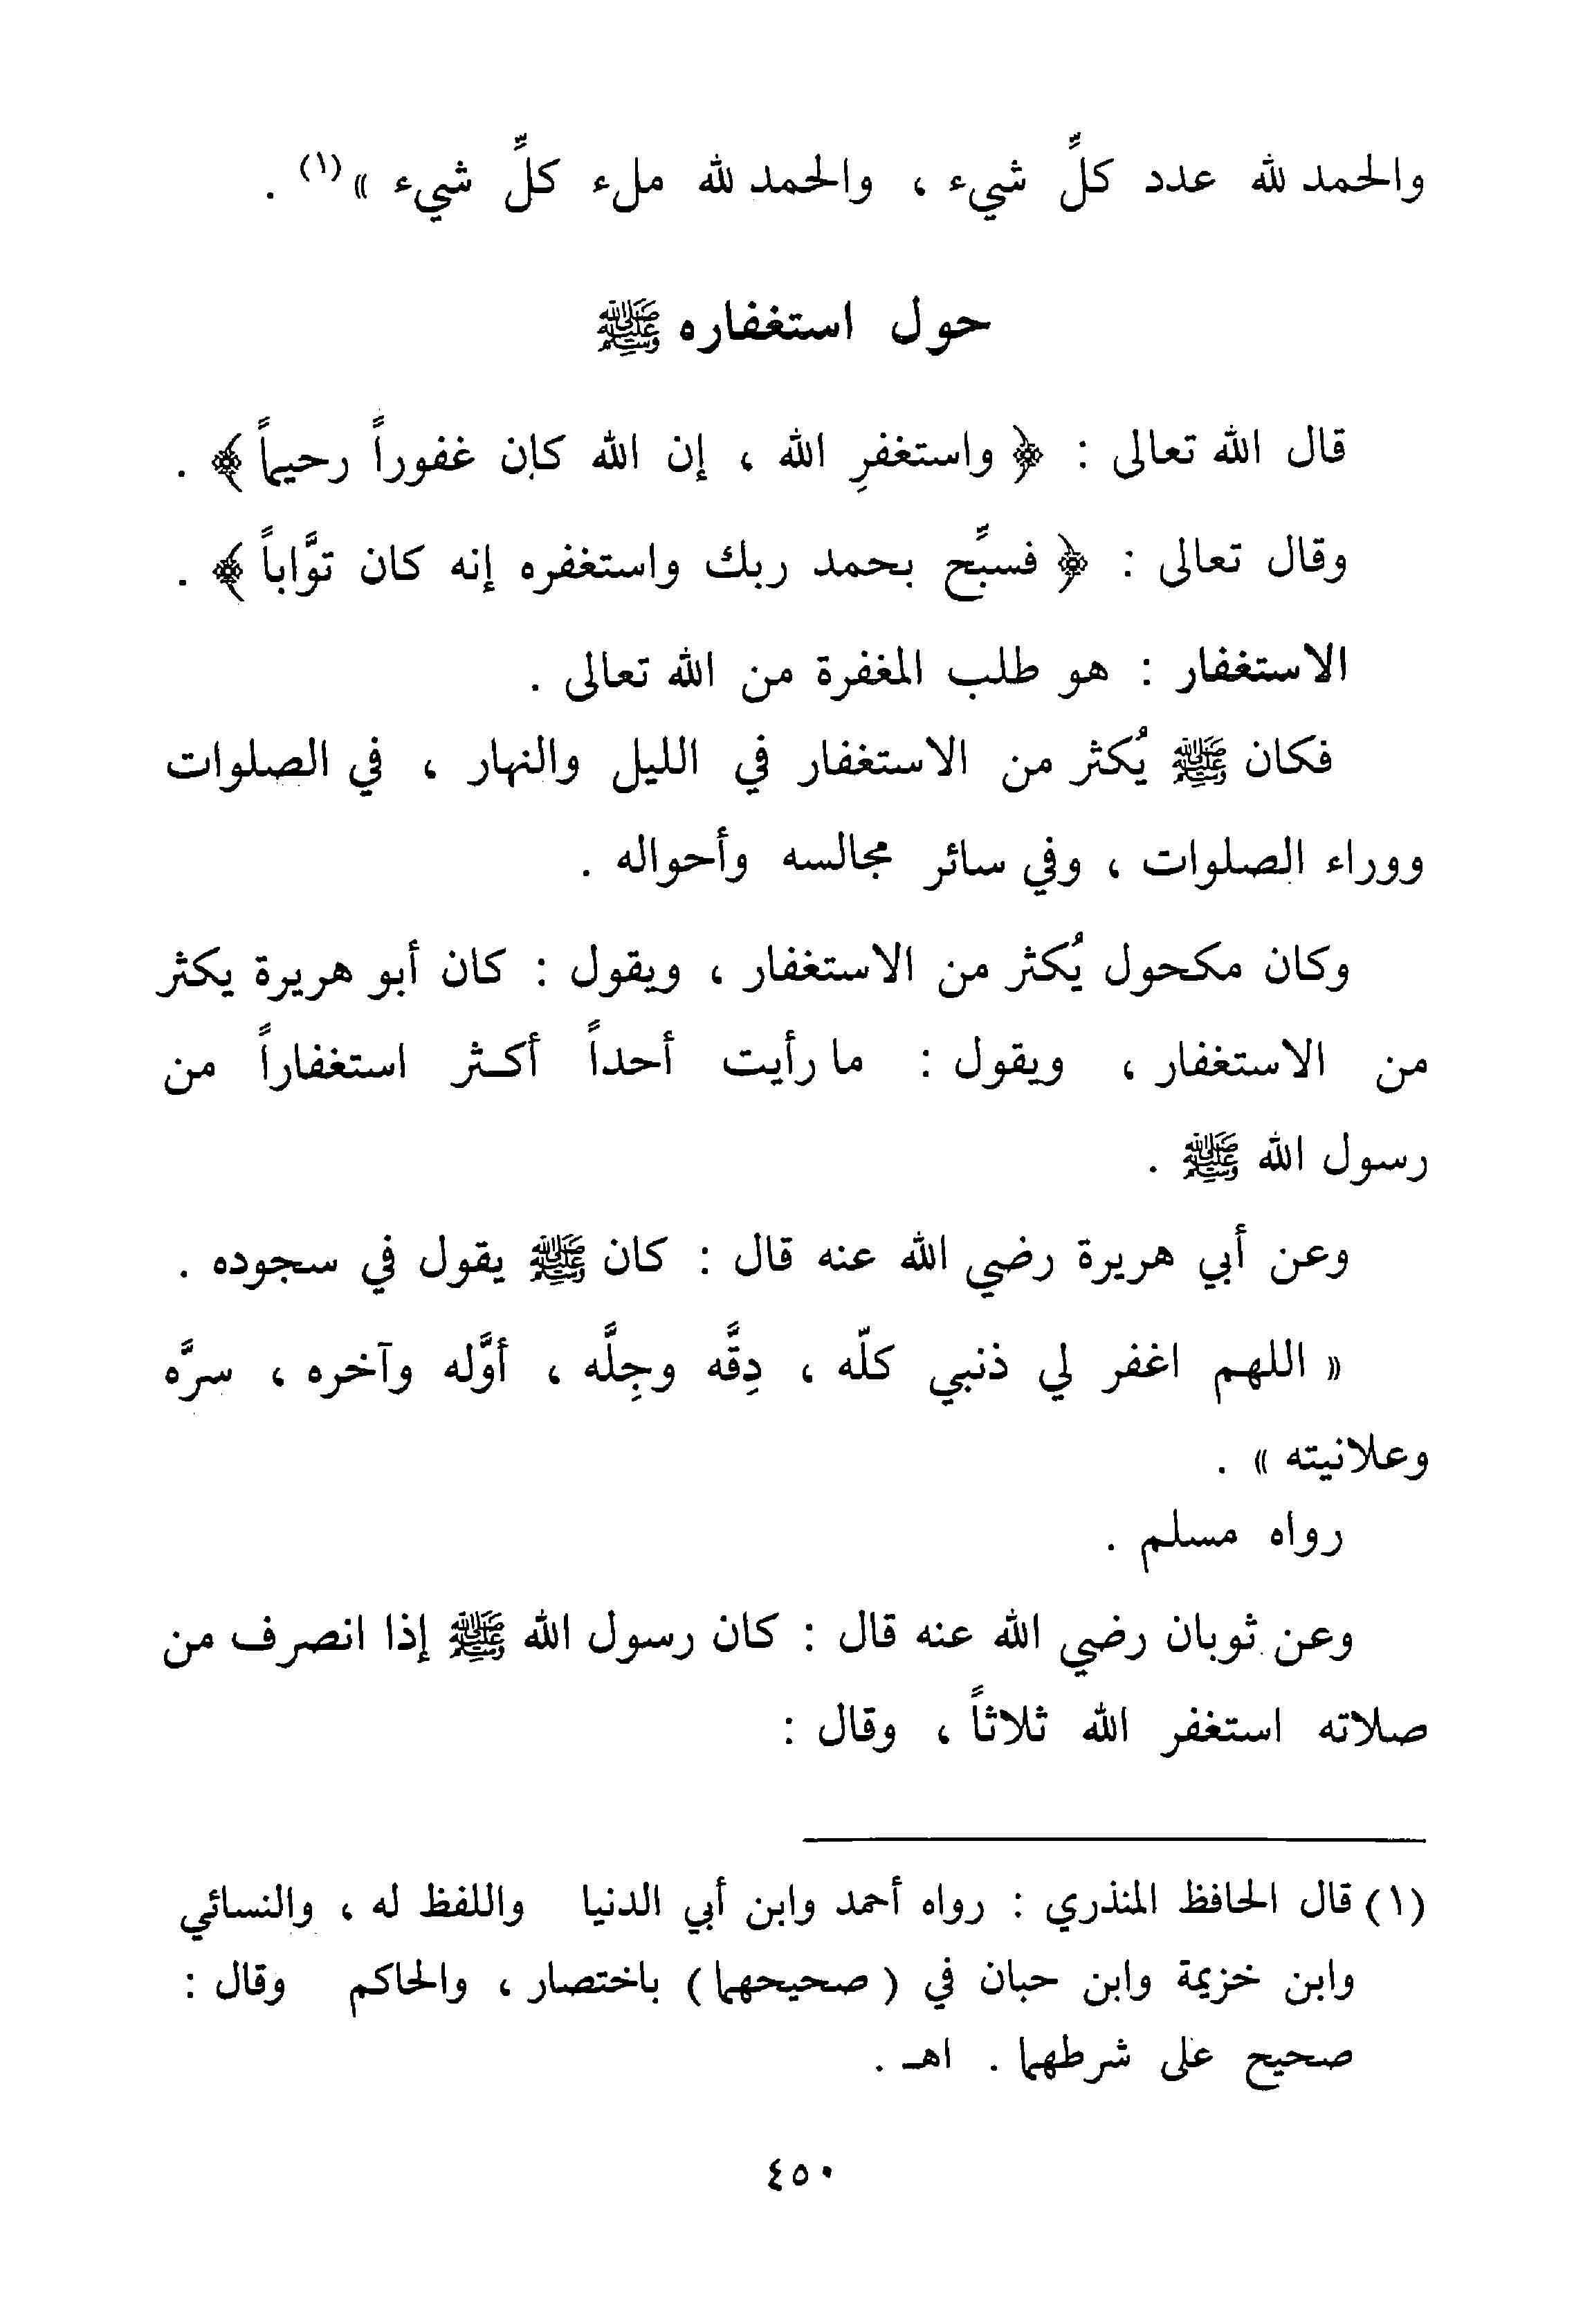 والحمد لله عدد كلِّ شيء ، والحمد لله ملء كلِّ شيء »(١) .
حول استغفاره ﷺ
قال الله تعالى : ﴿ واستغفرِ الله ، إن الله كان غفوراً رحيماً ﴾ .
وقال تعالى : ﴿ فسبِّح بحمد ربك واستغفره إنه كان توَّاباً ﴾ .
الاستغفار : هو طلب المغفرة من الله تعالى .
فكان ﷺ يُكثر من الاستغفار في الليل والنهار ، في الصلوات
ووراء الصلوات ، وفي سائر مجالسه وأحواله .
وكان مكحول يُكثر من الاستغفار ، ويقول : كان أبو هريرة يكثر
من الاستغفار ، ويقول : ما رأيت أحداً أكثر استغفاراً من
رسول الله ﷺ .
وعن أبي هريرة رضي الله عنه قال : كان ﷺ يقول في سجوده .
« اللهم اغفر لي ذنبي كلّه ، دِقَّه وجِلَّه ، أوَّله وآخره ، سرَّه
وعلانيته » .
رواه مسلم .
وعن ثوبان رضي الله عنه قال : كان رسول الله ﷺ إذا انصرف من
صلاته استغفر الله ثلاثاً ، وقال :
(١) قال الحافظ المنذري : رواه أحمد وابن أبي الدنيا واللفظ له ، والنسائي
وابن خزيمة وابن حبان في ( صحيحهما ) باختصار ، والحاكم وقال :
صحيح على شرطهما . اهـ .
٤٥٠